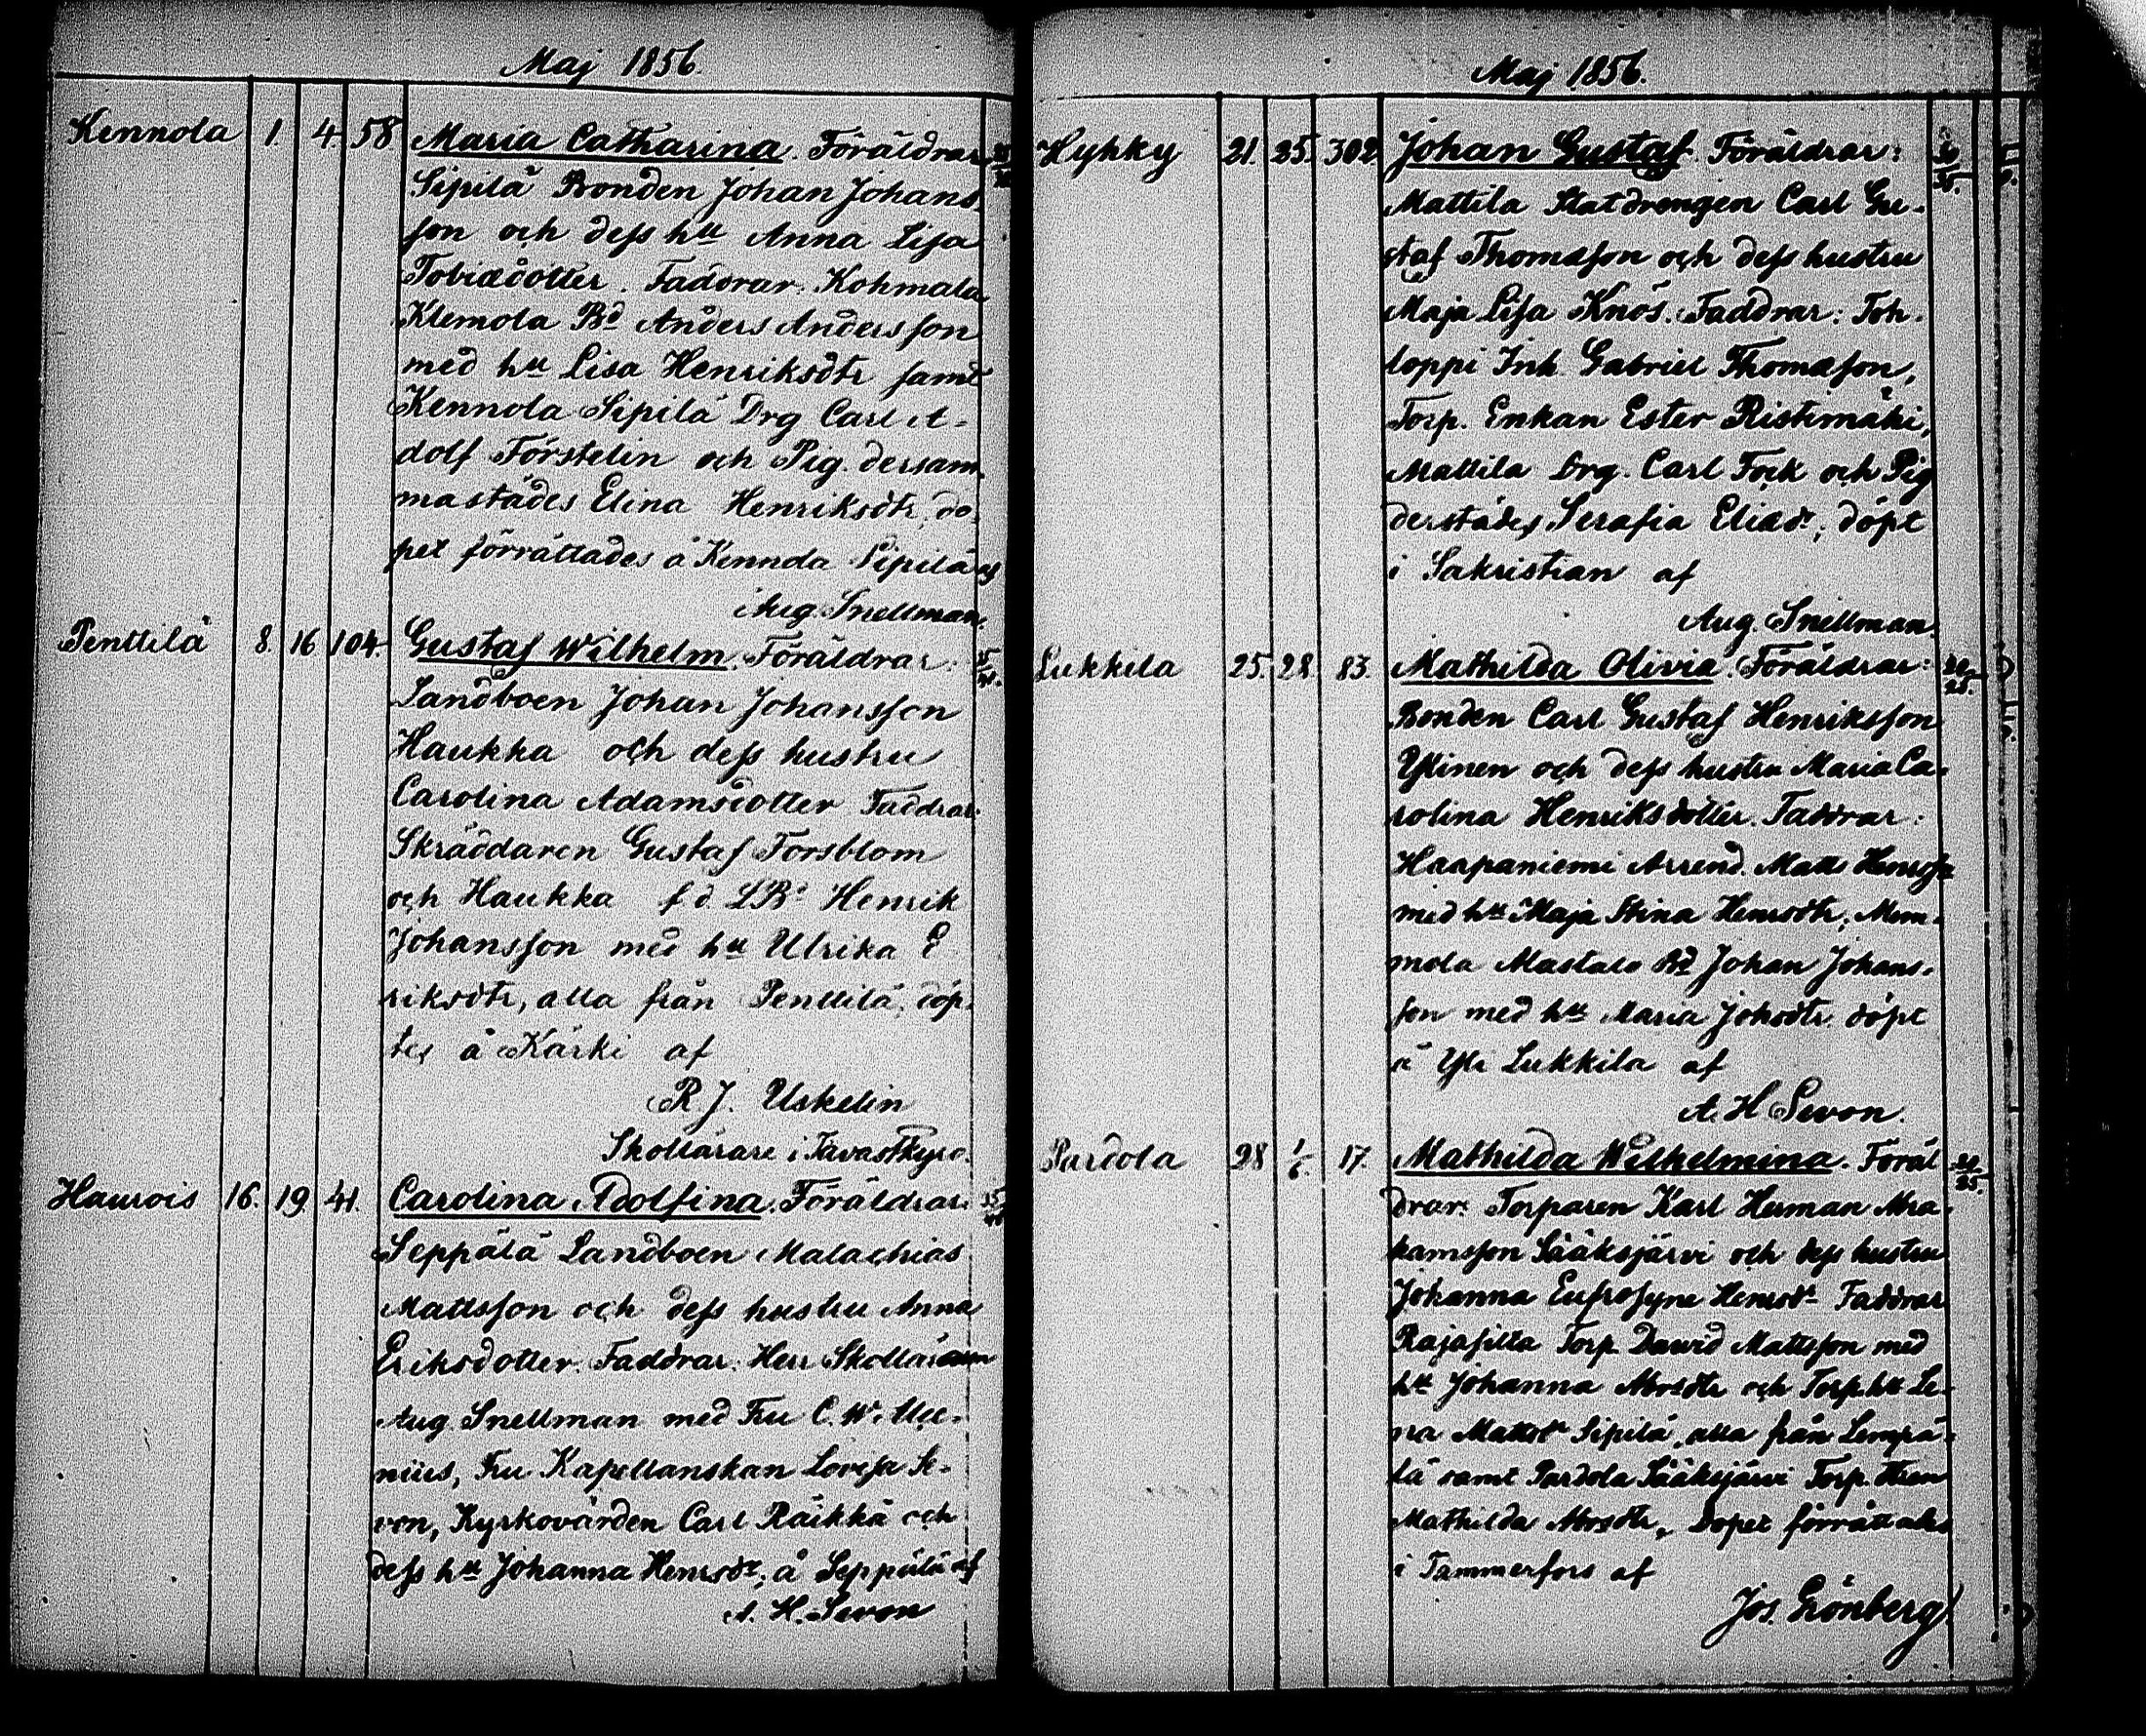 Maj 1856.
Kennola 1. 4. 58 Maria Catharina. Föräldrar
Sipilä Bonden Johan Johans-
son och dess htt Anna Lisa
Tobiædotter. Faddrar: Kohmala
Klemola Bd Anders Andersson
med htt Lisa Henriksdtr samt
Kennola Sipilä Drg Carl A-
dolf Förstelin och Pig. dersam-
mastädes Elina Henriksdtr, do-
pet förrättades å Kennola Sipilä af
Aug. Snellman.
Penttilä 8. 16 104. Gustaf Wilhelm. Föräldrar:
Landboen Johan Johansson
Haukka och dess hustru
Carolina Adamsdotter Faddrar:
Skräddaren Gustaf Forsblom
och Haukka f.d. LBd Henrik
Johansson med htt Ulrika E
riksdtr, alla från Penttilä, döp-
tes å Kärki af
R. J. Uskelin
Skollärare i Tavastkyro.
Haurois 16. 19. 41. Carolina Adolfina. Föräldrar:
Seppälä Landboen Malachias
Mattsson och dess hustru Anna
Eriksdotter. Faddrar: Herr Skolläraren
Aug. Snellman med Fru C. W.
nius, Fru Kapellanskan Lovisa Se-
von, Kyrkovärden Carl Räikkä och
dess htt Johanna Henrsdr, å Seppälä af
A. H. Sevon
Maj 1856.
Hyhky 21. 25. 302 Johan Gustaf. Föräldrar:
Mattila Statdrengen Carl Gu-
staf Thomasson och dess hustru
Maja Lisa Knös. Faddrar: Toh-
loppi Inh. Gabriel Thomasson,
Torp. Enkan Ester Ristimäki,
Mattila Drg. Carl Fock och Pig
derstädes Serafia Eliædr, döpt
i Sakristian af
Aug. Snellman.
Lukkila 25. 28. 83. Mathilda Olivia. Föräldrar: 30/25.
Bonden Carl Gustaf Henriksson
Ylinen och dess hustru Maria Ca-
rolina Henriksdotter. Faddrar:
Haapaniemi Arrend. Matts
med htt Maja Stina Henrsdtr,
mola Mastala Bd Johan Johans-
son med htt Maria Johsdtr. döpt
å Yli Lukkila af
A. H Sevon.
Pardola 28 1/6 17. Mathilda Wilhelmina. Föräl
drar: Torparen Karl Herman Abra-
hamsson Sääksjärvi och dess hustru
Johanna Eufrosyne Henrsdr. Faddrar
Rajasilta Torp. David Mattsson med
htt Johanna Abrsdtr och Torp. htt Le-
na Mattsdr Sipilä, alla från Lempä-
lä samt Pardola Sääksjärvi Torp.
Mathilda Abrsdtr, Dopet förrättades
i Tammerfors af
Jos. Grönberg.